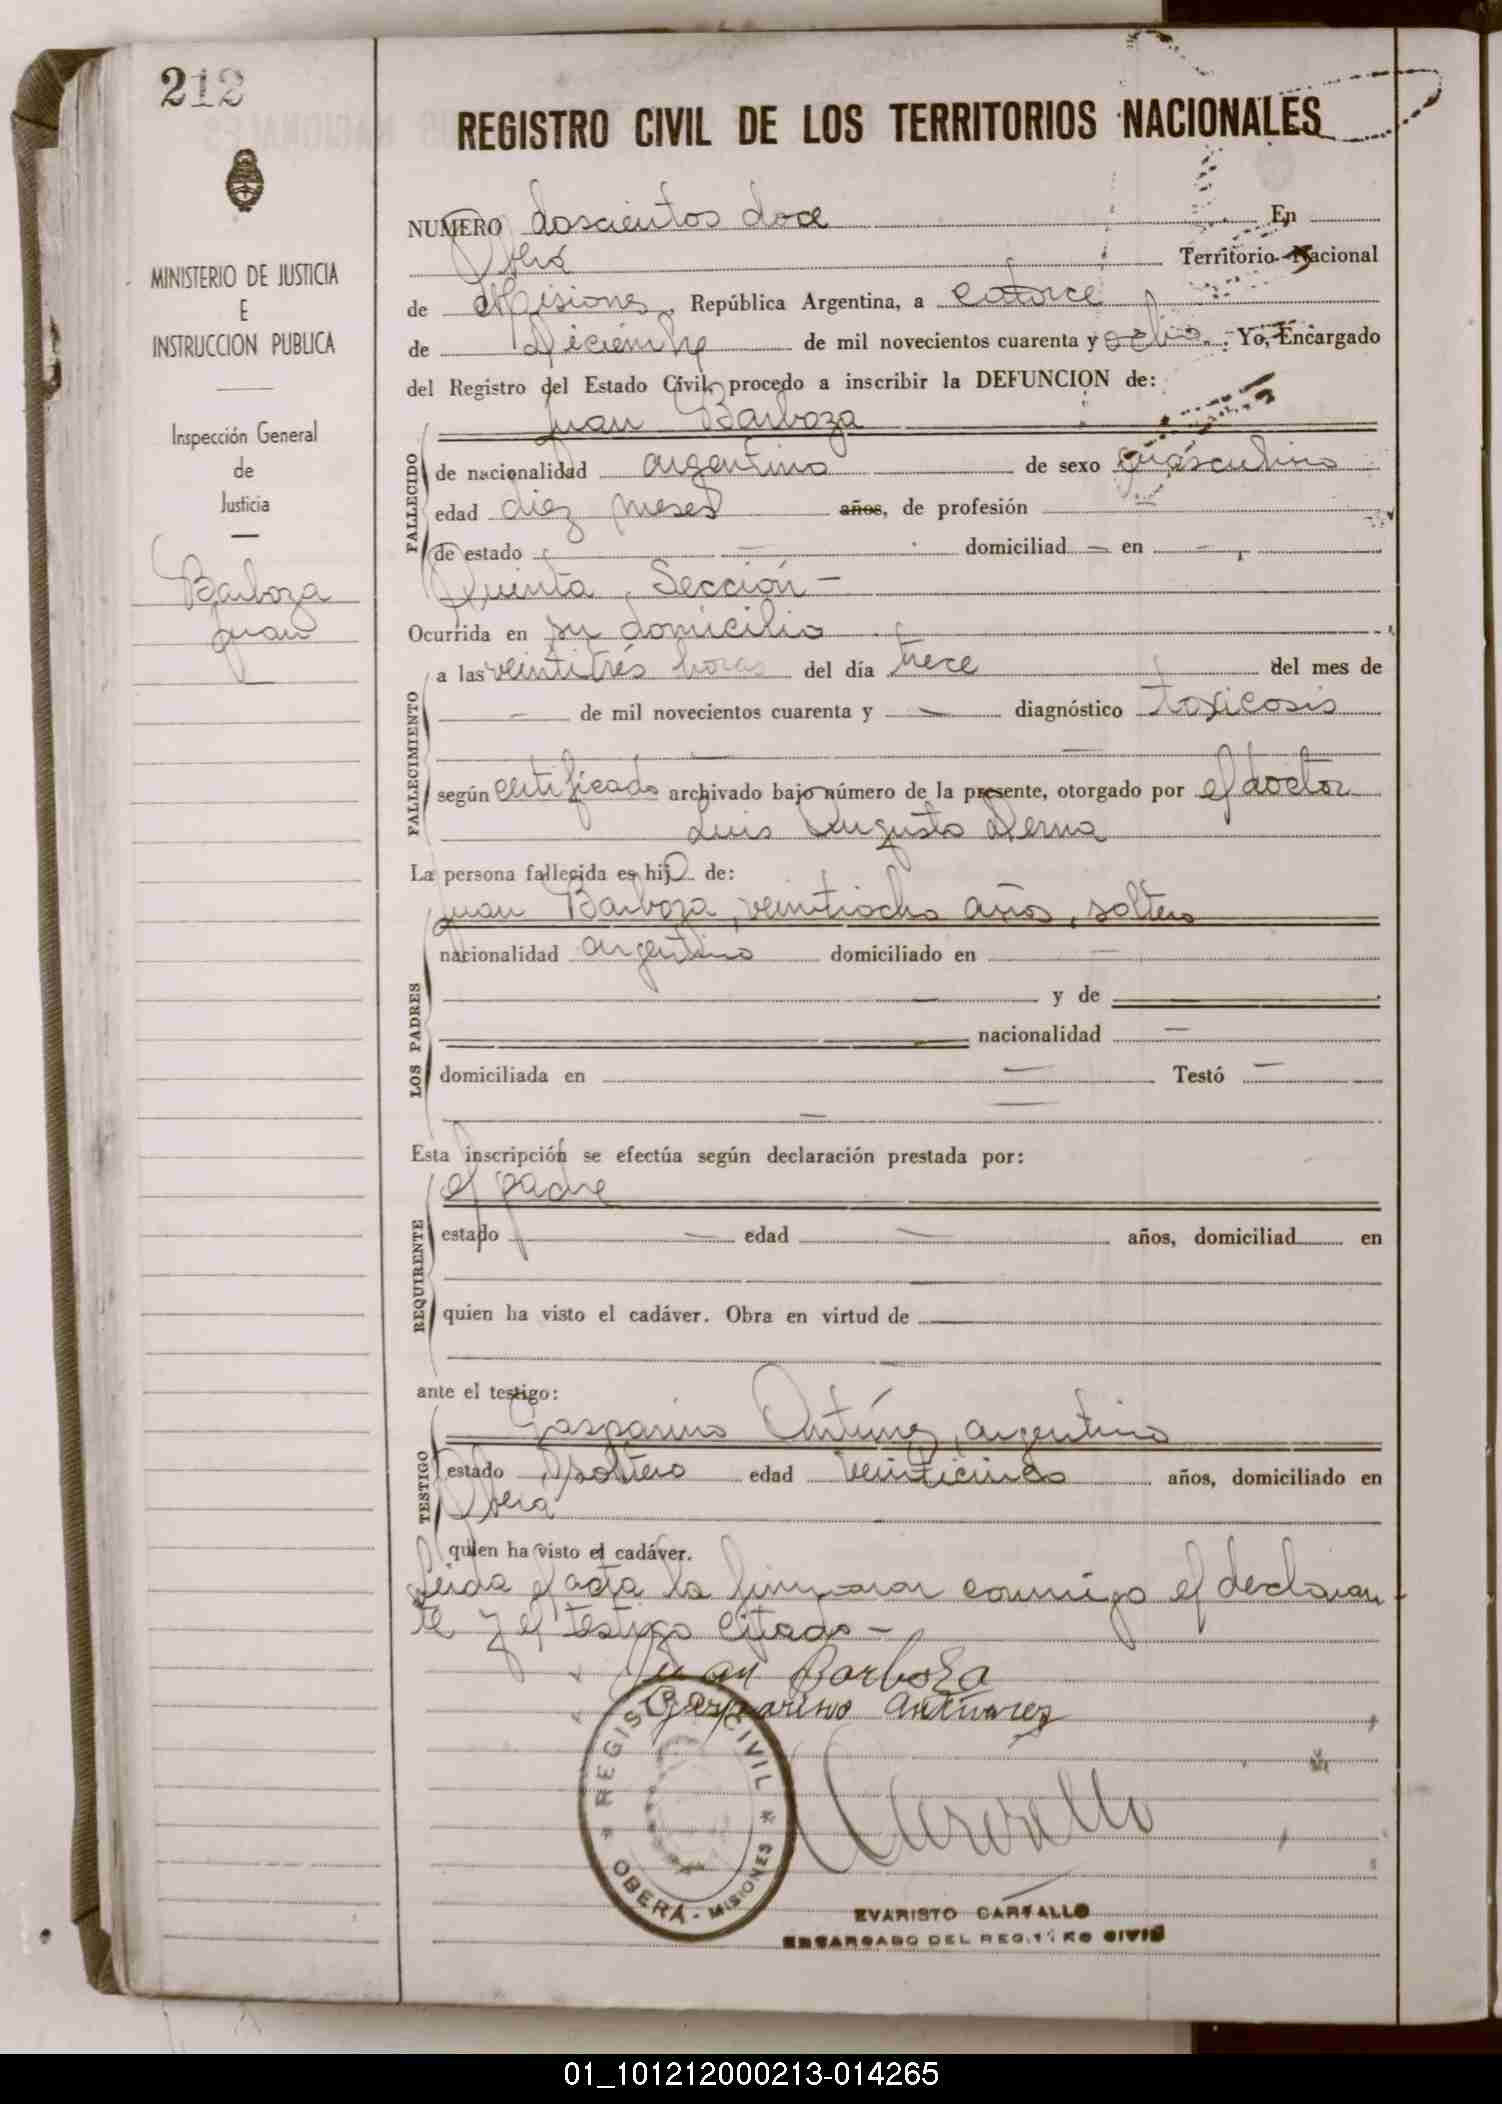 212
REGISTRO CIVIL DE LOS TERRITORIOS NACIONALES
MINISTERIO DE JUSTICIA
E
INSTRUCCION PUBLICA
Inspección General
de
Justicia
Barboza
Juan
NUMERO doscientos doce En
Oberá Territorio Nacional
de Misiones, República Argentina, a catorce
de Diciembre de mil novecientos cuarenta y ocho. Yo, Encargado
del Registro del Estado Civil, procedo a inscribir la DEFUNCION de:
Juan Barboza
FALLECIDO
de nacionalidad argentino de sexo masculino
edad diez meses años, de profesión
de estado — domiciliad — en —
Quinta Sección —
Ocurrida en su domicilio
FALLECIMIENTO
a las veintitrés horas del día trece del mes de
— de mil novecientos cuarenta y — diagnóstico toxicosis
—
según certificado archivado bajo número de la presente, otorgado por el doctor
Luis Augusto Derna
La persona fallecida es hijo de:
LOS PADRES
Juan Barboza, veintiocho años, soltero
nacionalidad argentino domiciliado en —
— y de
nacionalidad —
domiciliada en — Testó —
—
Esta inscripción se efectúa según declaración prestada por:
REQUIRENTE
el padre
estado — edad — años, domiciliad en
quien ha visto el cadáver. Obra en virtud de —
ante el testigo:
TESTIGO
Gasparino Antúnez, argentino
estado soltero edad veinticinco años, domiciliado en
Oberá
quien ha visto el cadáver.
Leida el acta la firmaron conmigo el declaran-
te y el testigo citado —
Juan Barboza
Gasparino Antunez
REGISTRO CIVIL
* OBERÁ - MISIONES *
EVARISTO CARVALLO
ENCARGADO DEL REGISTRO CIVIL
01_101212000213-014265